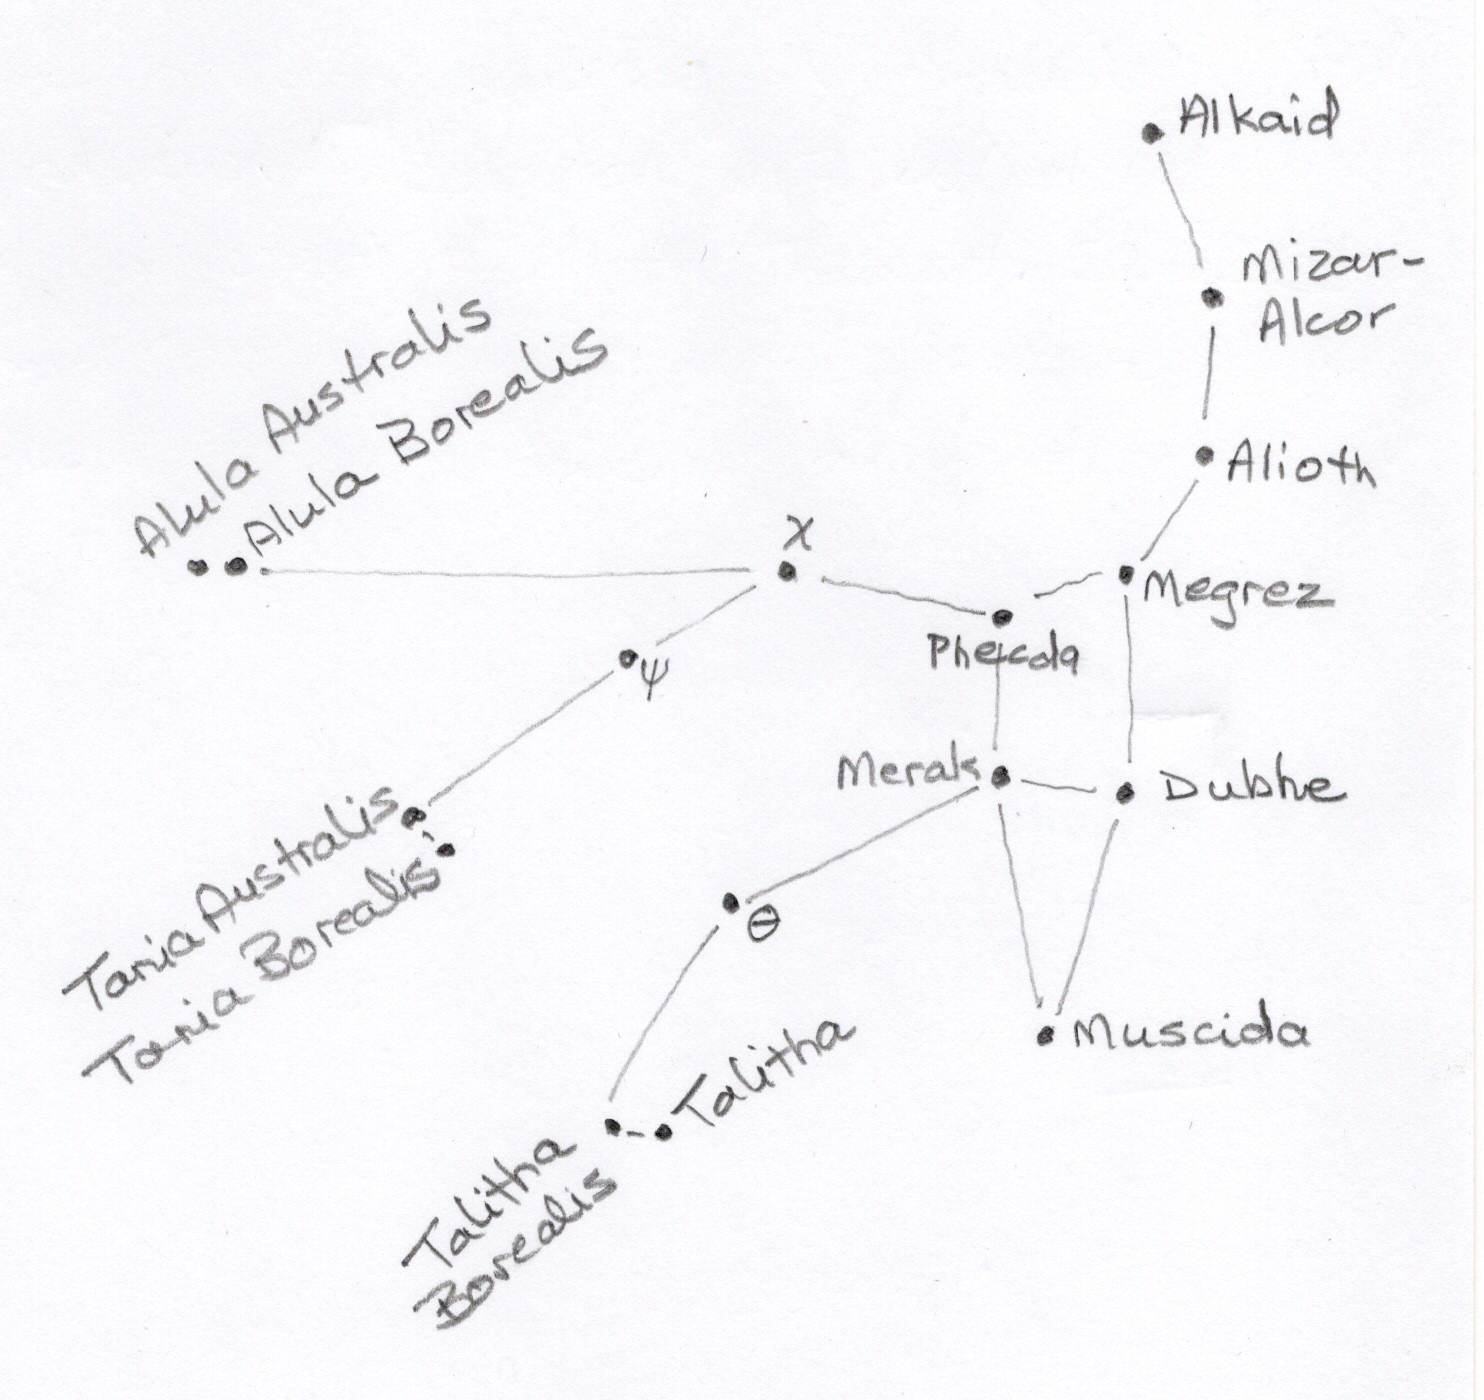 Alkaid
Mizar-
Alcor
Alula Australis
Alula Borealis
Alioth
χ
Megrez
Phecda
ψ
Merak
Dubhe
Tania Australis
Tania Borealis
θ
Muscida
Talitha
Talitha
Borealis